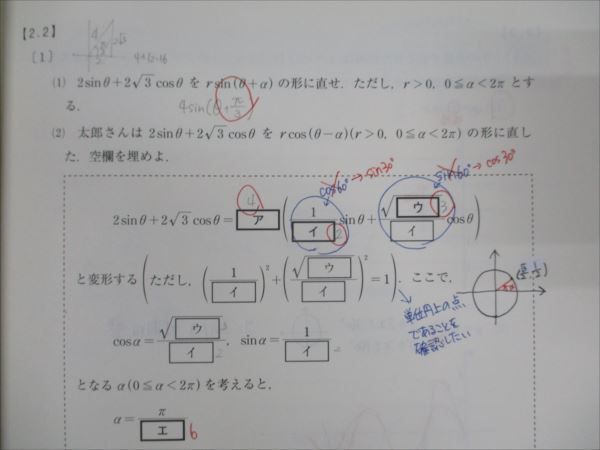 【2.2】
〔1〕 4+12=16
(1) 2sinθ+2√3cosθ を r sin(θ+α) の形に直せ．ただし，r>0，0≦α<2π とす
る．
4sin(θ+π/3)
(2) 太郎さんは 2sinθ+2√3cosθ を r cos(θ-α)(r>0, 0≦α<2π) の形に直し
た．空欄を埋めよ．
cos60°→sin30° sin60°→cos30°
4 2 3
2sinθ+2√3cosθ=ア(1/イ sinθ+√ウ/イ cosθ)
と変形する(ただし，(1/イ)²+(√ウ/イ)²=1)．ここで，
単位円上の点
であることを
確認したい
cosα=√ウ/イ，sinα=1/イ
3 2 2
となる α(0≦α<2π) を考えると，
α=π/エ 6